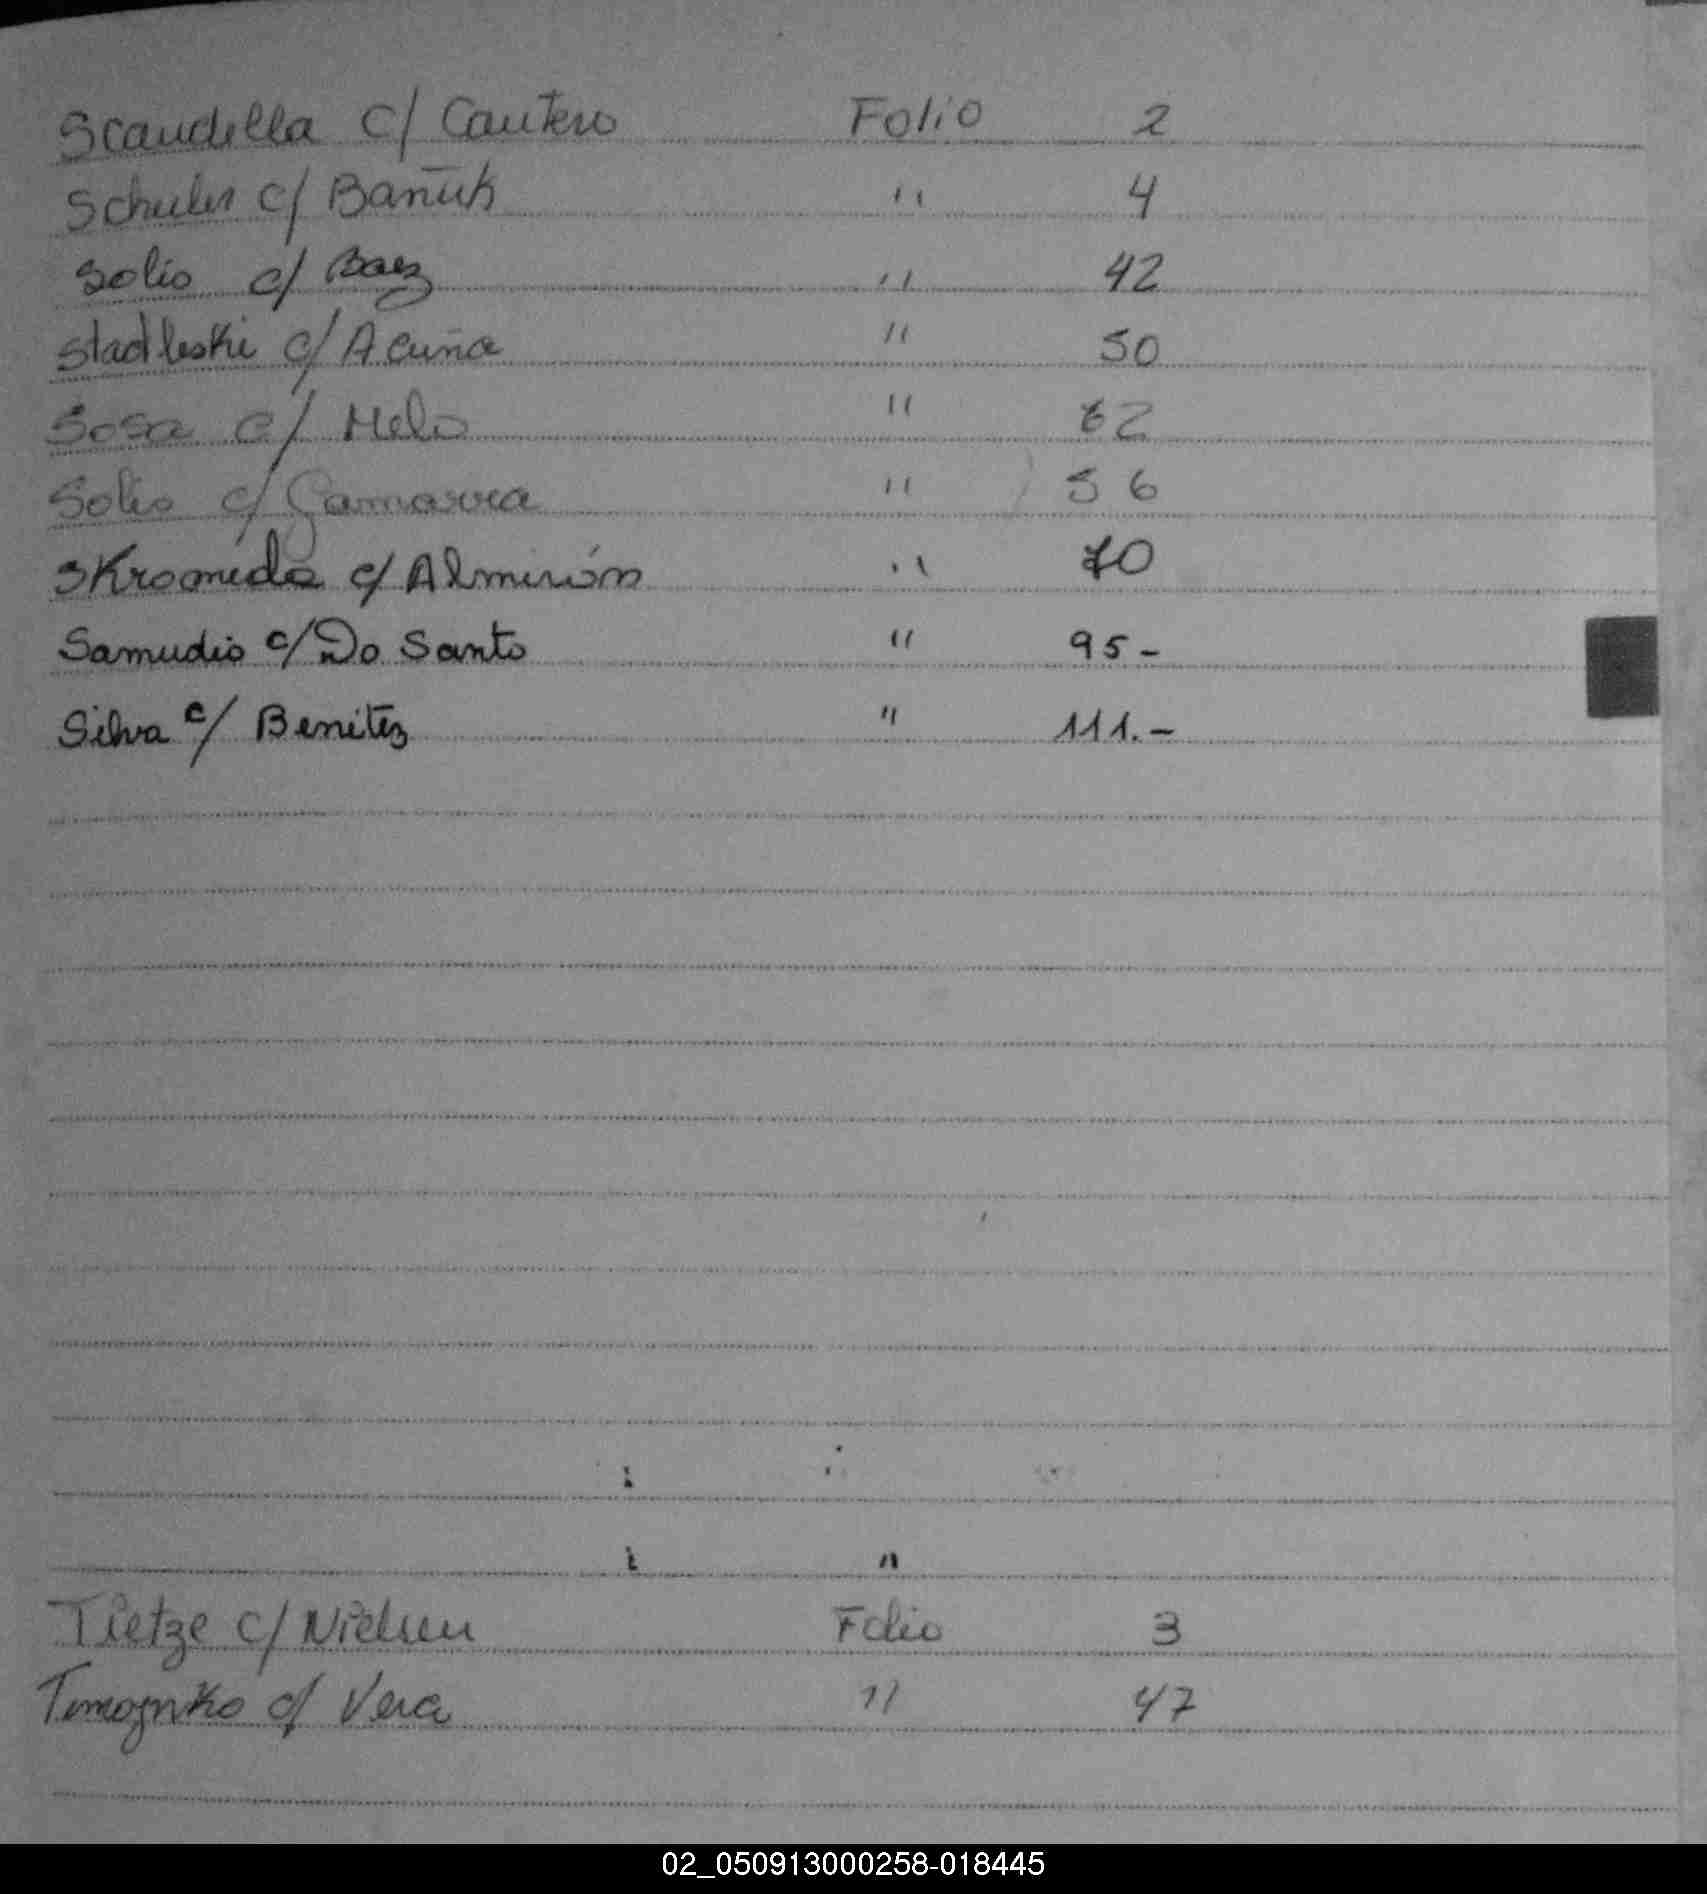 Scandella c/ Cantero Folio 2
Schuler c/ Bañuk " 4
Solis c/ Baez " 42
Stadleski c/ Acuña " 50
Sosa c/ Melo " 62
Solis c/ Gamarra " 56
SKromeda c/ Almirón " 70
Samudio c/ Do Santo " 95-
Silva c/ Benítez " 111.-
"
Tietze c/ Nielsen Folio 3
Timoznko c/ Vera " 47
02_050913000258-018445